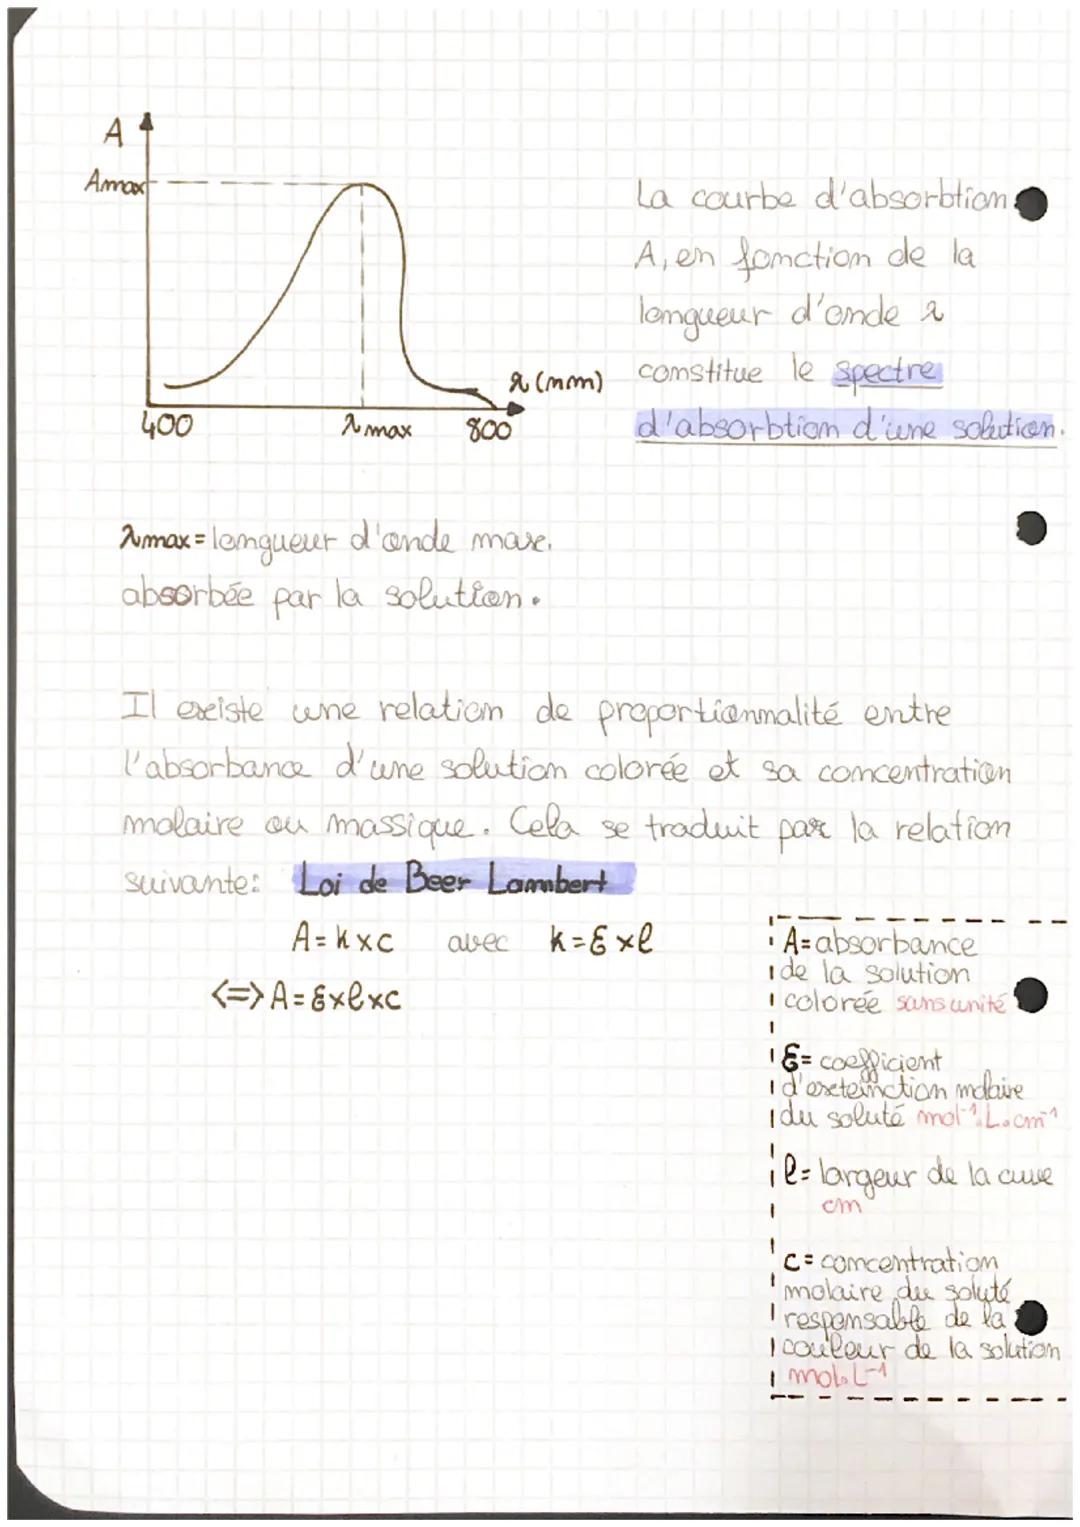 A
Amax
λ (nm)
400
λmax
800
La courbe d'absorbtion
A, en fonction de la
longueur d'onde λ
constitue le spectre
d'absorbtion d'une solution.
λmax = longueur d'onde max.
absorbée par la solution.
Il existe une relation de proportionnalité entre
l'absorbance d'une solution colorée et sa concentration
molaire ou massique. Cela se traduit par la relation
suivante: Loi de Beer Lambert
A = k × c avec k = ε × l
<=> A = ε × l × c
A = absorbance
de la solution
colorée sans unité
ε = coefficient
d'exteinction molaire
du soluté mol⁻¹.L.cm⁻¹
l = largeur de la cuve
cm
c = concentration
molaire du soluté
responsable de la
couleur de la solution
mol.L⁻¹